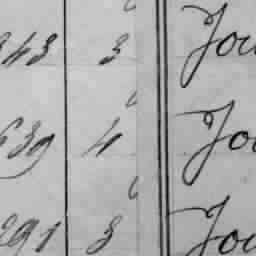 343 3 Jou
639 4 Jou
291 3 Jou